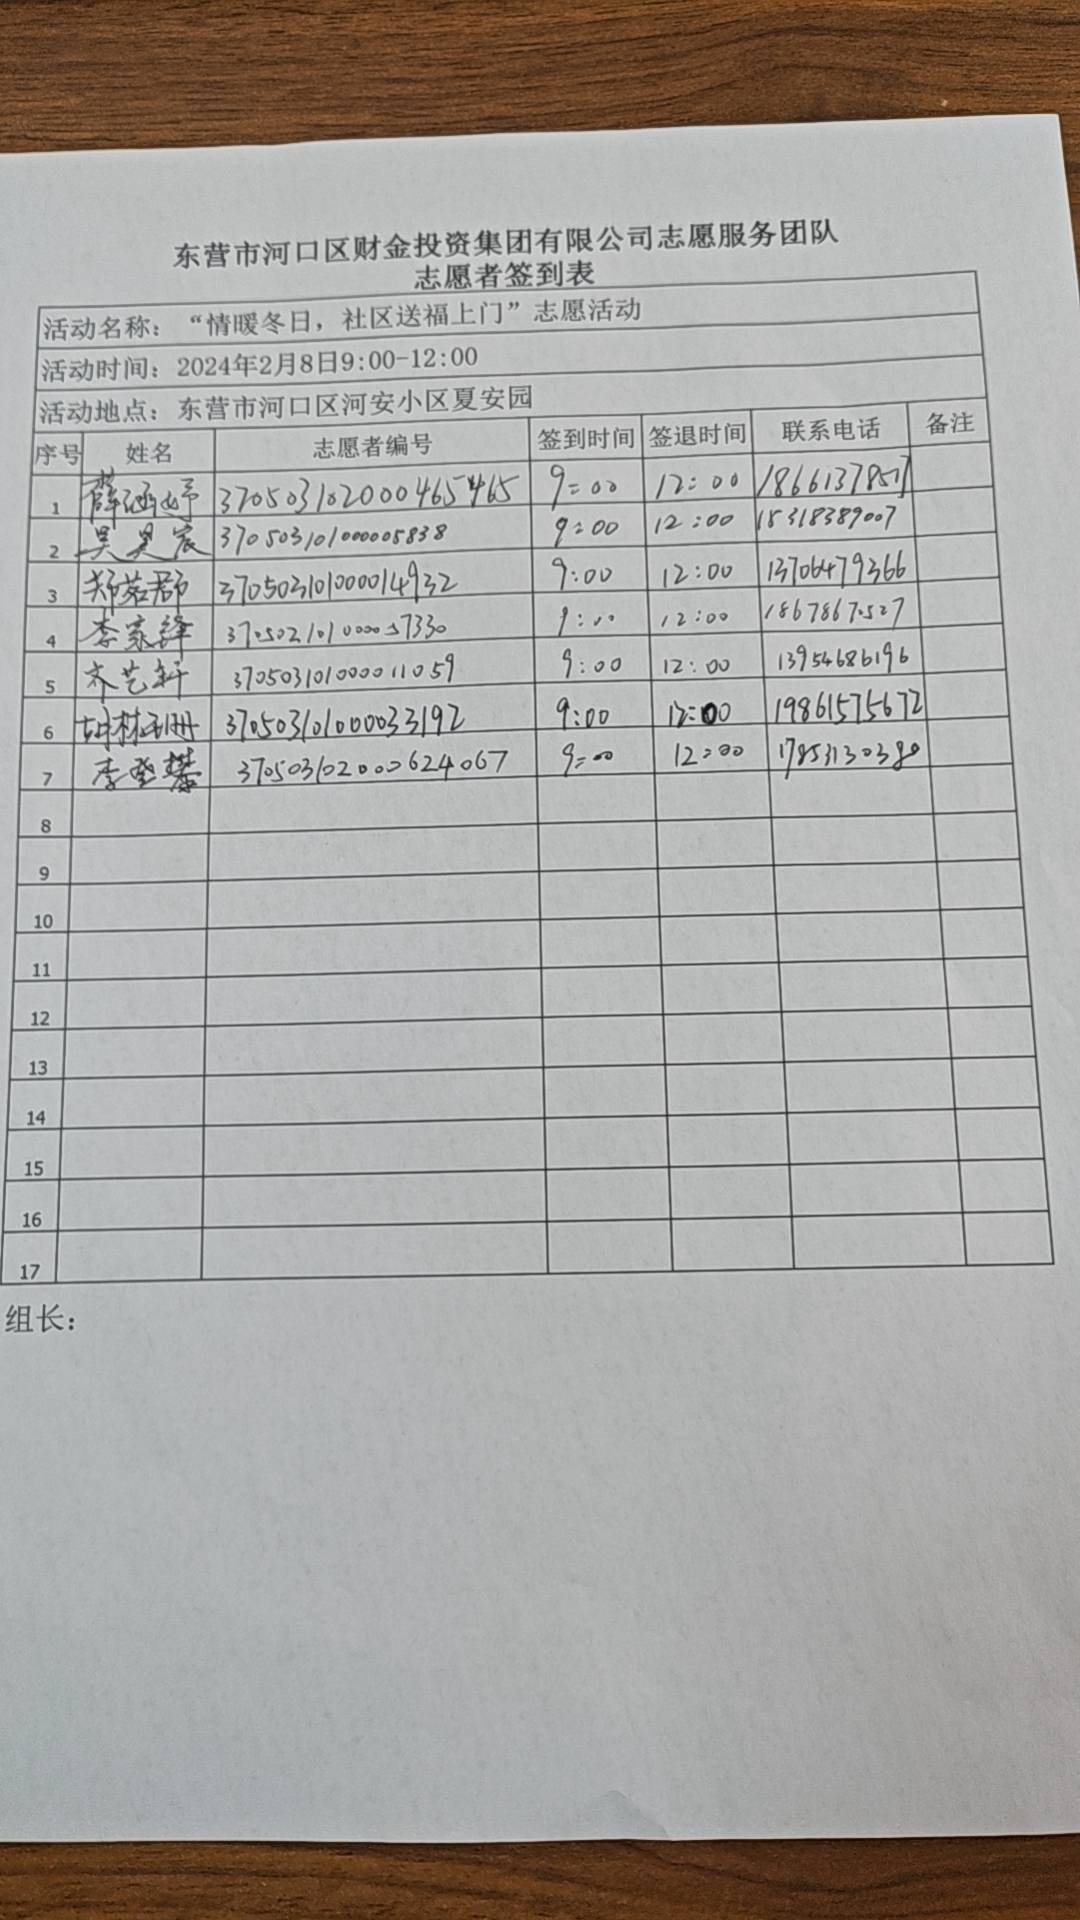 东营市河口区财金投资集团有限公司志愿服务团队
志愿者签到表
活动名称：“情暖冬日，社区送福上门”志愿活动
活动时间：2024年2月8日9:00-12:00
活动地点：东营市河口区河安小区夏安园
序号 姓名 志愿者编号 签到时间 签退时间 联系电话 备注
1 薛涵婷 370503102000465465 9:00 12:00
2 吴昊宸 370503101000005838 9:00 12:00 15318389007
3 郑茗郡 370503101000014932 9:00 12:00 13706479366
4 李家绎 370502101000057330 9:00 12:00 18678670527
5 齐艺轩 370503101000011059 9:00 12:00 13954686196
6 370503101000033192 9:00 12:00 19861575672
7 李登攀 370503102000624067 9:00 12:00 17853130380
8
9
10
11
12
13
14
15
16
17
组长：